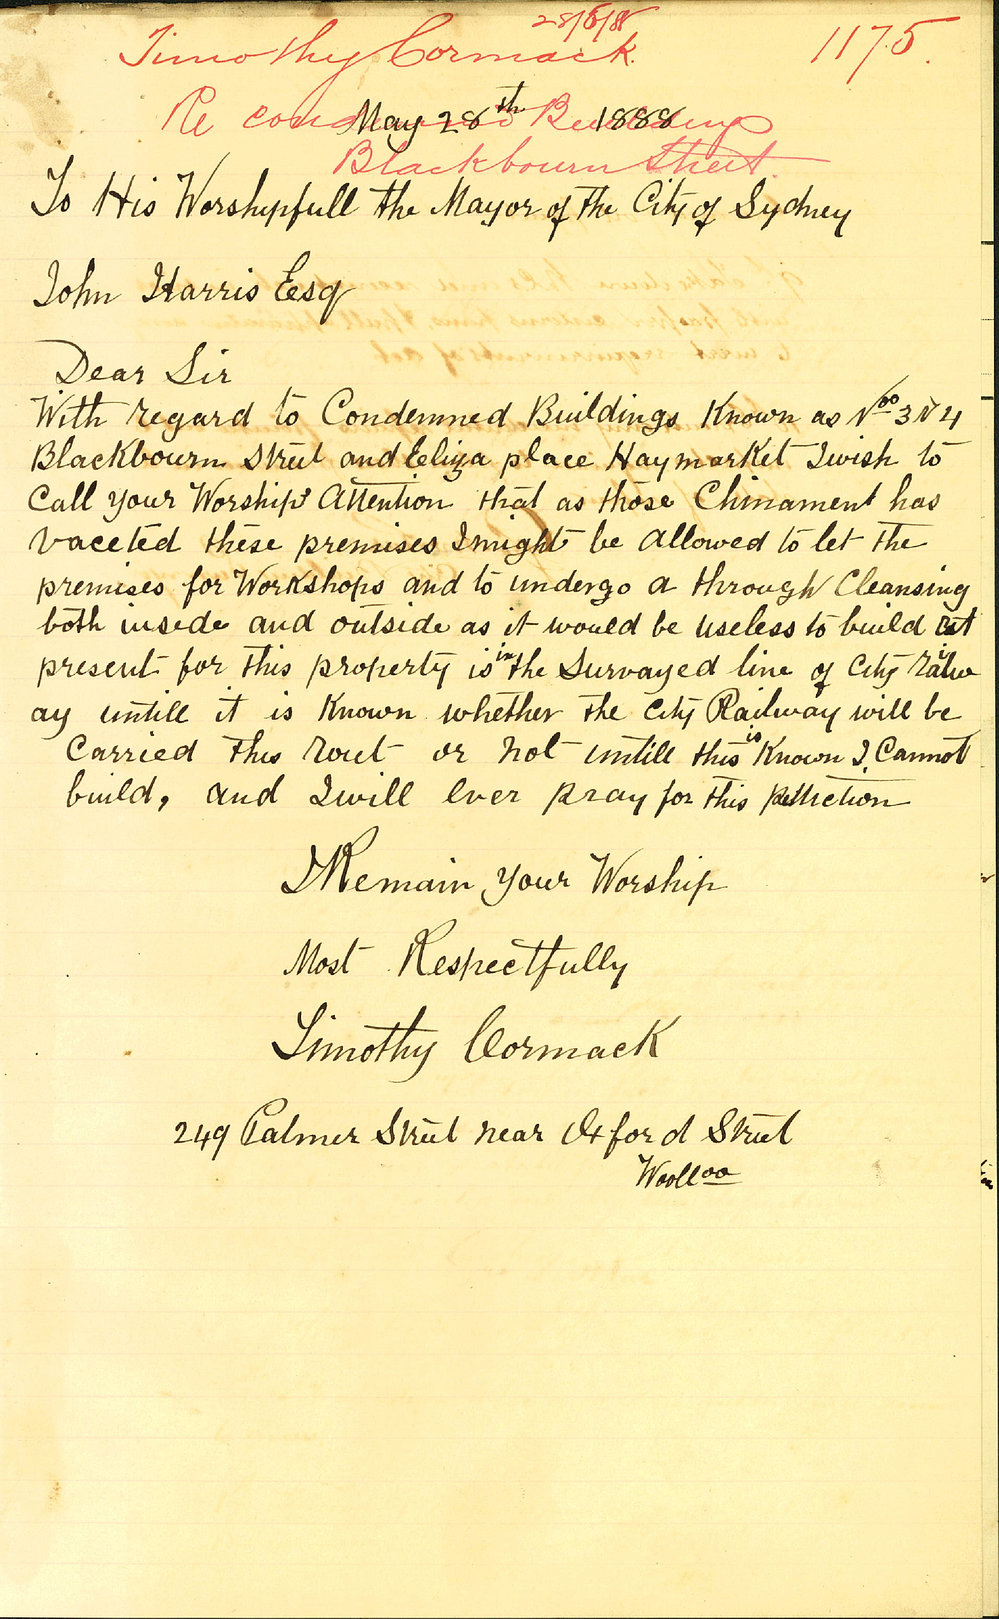 28/5/88
Timothy Cormack. 1175.
Re condemned Buildings
May 28th 1888
Blackbourn Street.
To His Worshipfull the Mayor of the City of Sydney
John Harris Esq
Dear Sir
With regard to Condemned Buildings Known as Nos 3 & 4
Blackbourn Street and Eliza place Haymarket I wish to
Call your Worship's Attention that as those Chinament has
vaceted these premises I might be allowed to let the
premises for Workshops and to undergo a through Cleansing
both inside and outside as it would be useless to build at
present for this property is in the Survayed line of City railw
ay untill it is Known whether the City Railway will be
Carried this rout or not untill this is Known I Cannot
build, and I will ever pray for this petiction
I Remain your Worship
Most Respectfully
Timothy Cormack
249 Palmer Street near Oxford Street
Woolloo